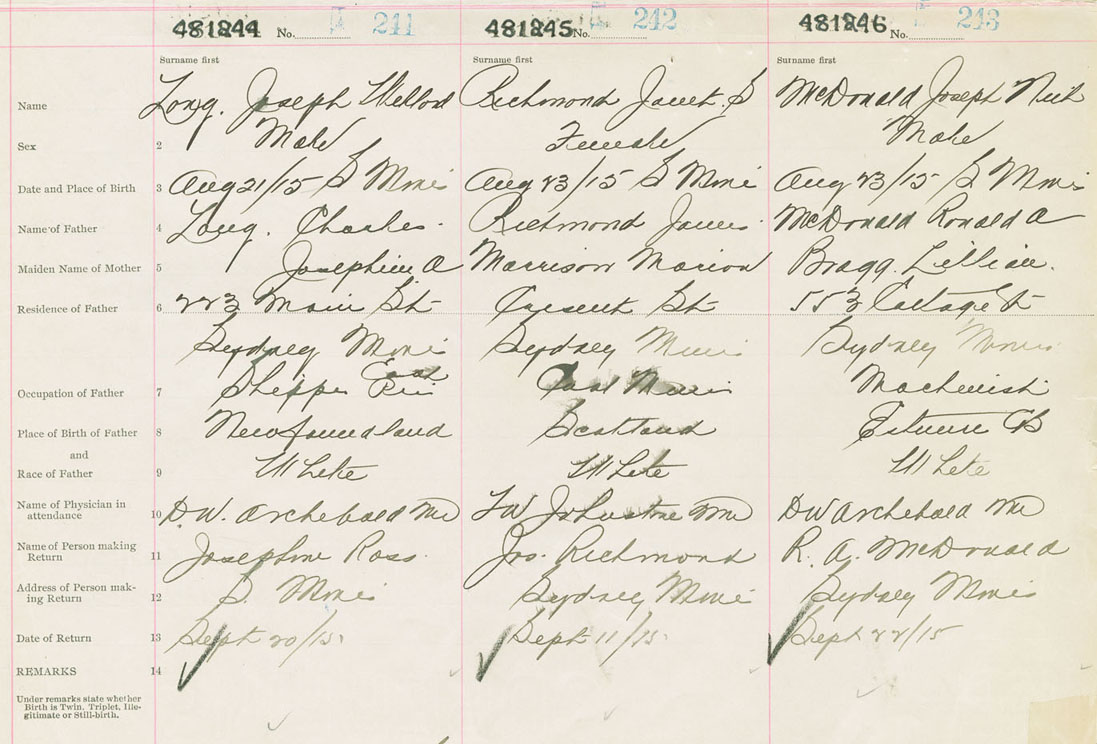 481244 No. 241 481245 No. 242 481246 No. 243
Surname first Surname first Surname first
Name Long. Joseph Richmond Janet. S McDonald Joseph
Sex 2 Male Female Male
Date and Place of Birth 3 Aug 21/15 S Mines Aug 23/15 S Mines Aug 23/15 S Mines
Name of Father 4 Long. Charles. Richmond James. McDonald Ronald A
Maiden Name of Mother 5 Josephine A Morrison Marion Bragg. Lillian.
Residence of Father 6 223 Main St Crescent St 553 Cottage St
Sydney Mines Sydney Mines Sydney Mines
Occupation of Father 7 Coal Miner Machinist
Place of Birth of Father 8 Newfoundland Scotland CB
and
Race of Father 9 White White White
Name of Physician in
attendance 10 D. W. Archibald MD FW Johnstone MD DW Archibald MD
Name of Person making
Return 11 Josephine Ross. Jas. Richmond R. A. McDonald
Address of Person mak-
ing Return 12 S. Mines Sydney Mines Sydney Mines
Date of Return 13 Sept 20/15 Sept 11/15 Sept 22/15
REMARKS 14
Under remarks state whether
Birth is Twin. Triplet, Ille-
gitimate or Still-birth.